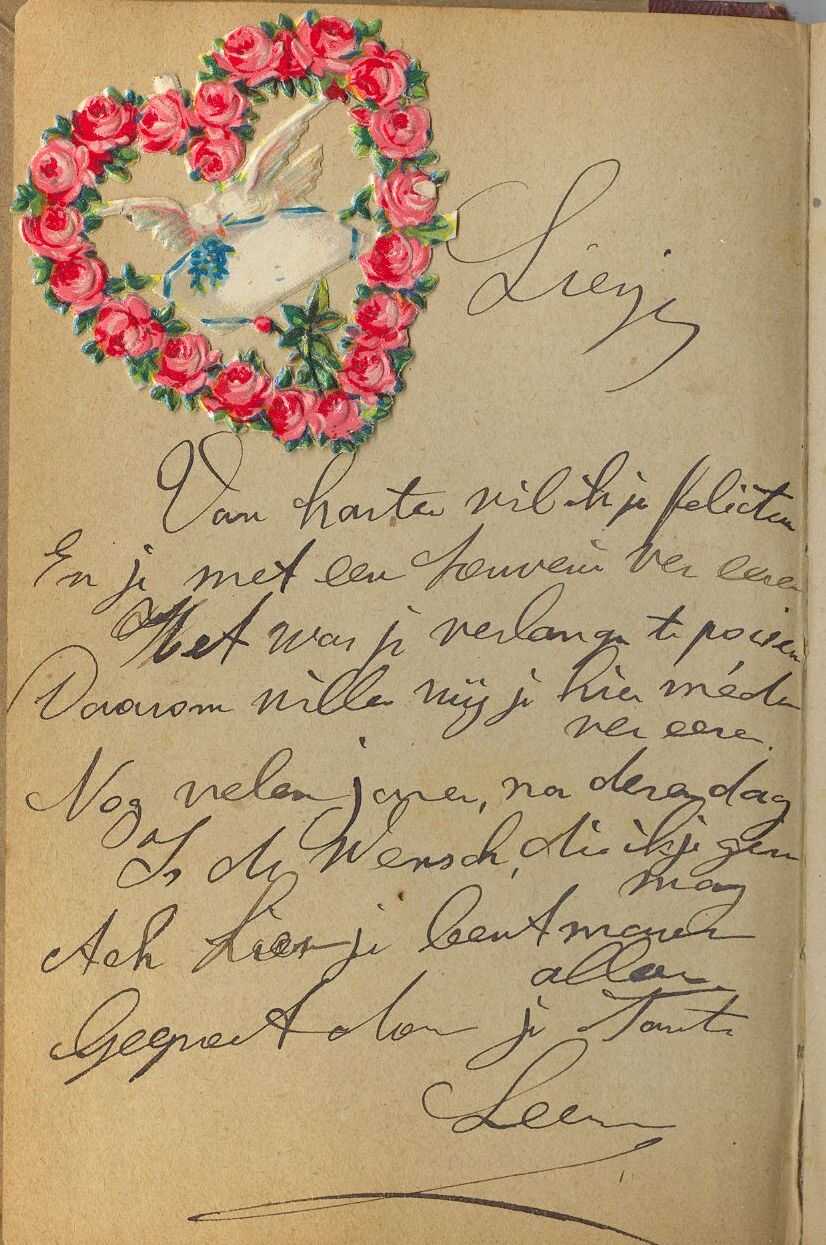 Liesje
Van harte wil ik je feliciteren
En je met een souvenir ver eeren
Het was je verlangen te poesieen
Daarom willen wij je hier méde
ver eeren.
Nog velen jaren, na dezen dag
Is de Wensch, die ik je geven
mag
Ach Lies je bent maar
alleen
Gegroet dan je Tante
Leen